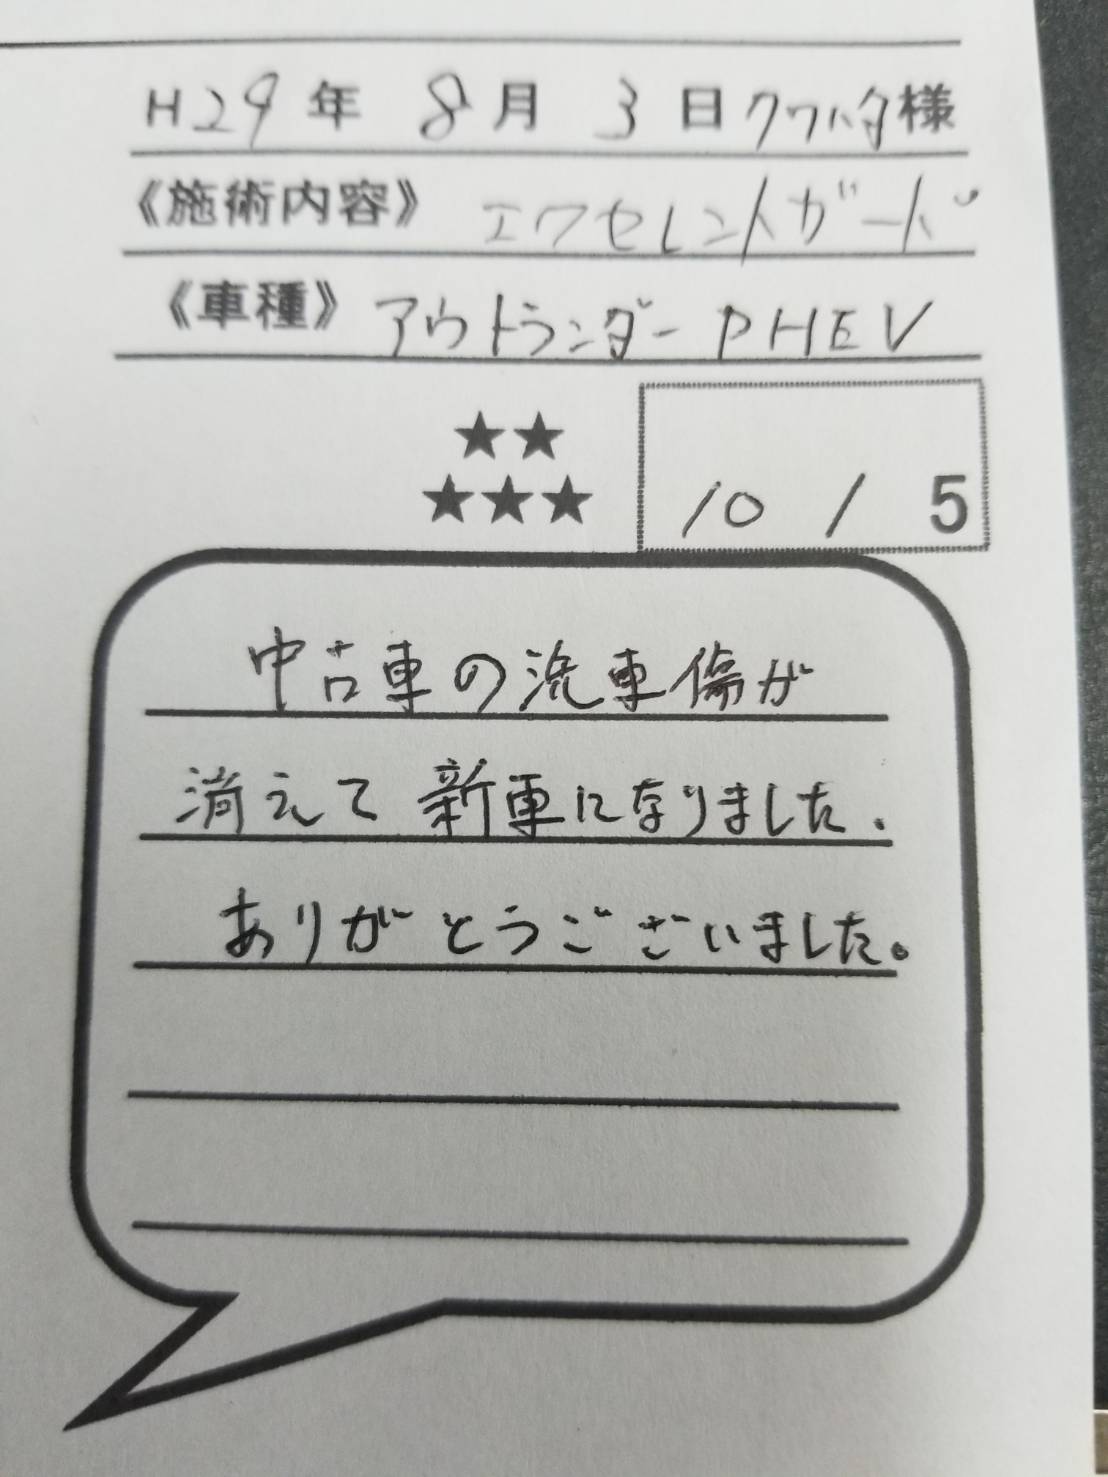 H29年 8月 3日 クワハタ様
《施術内容》 エクセレントガード
《車種》 アウトランダー PHEV
★★
★★★
10 / 5
中古車の洗車傷が
消えて新車になりました.
ありがとうございました。